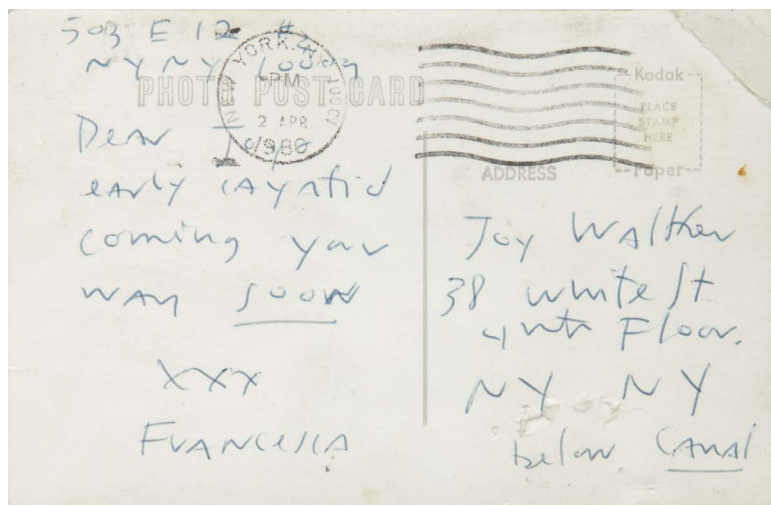 503 E 12 #4
NY NY 10009
PHOTO POST CARD
NEW YORK, NY 10001
PM
2 APR
1980
Dear Joy
early caryatid
coming your
way soon
XXX
Francesca
Kodak
PLACE
STAMP
HERE
Paper
ADDRESS
Joy Walker
38 White St
4th Floor.
NY NY
below Canal